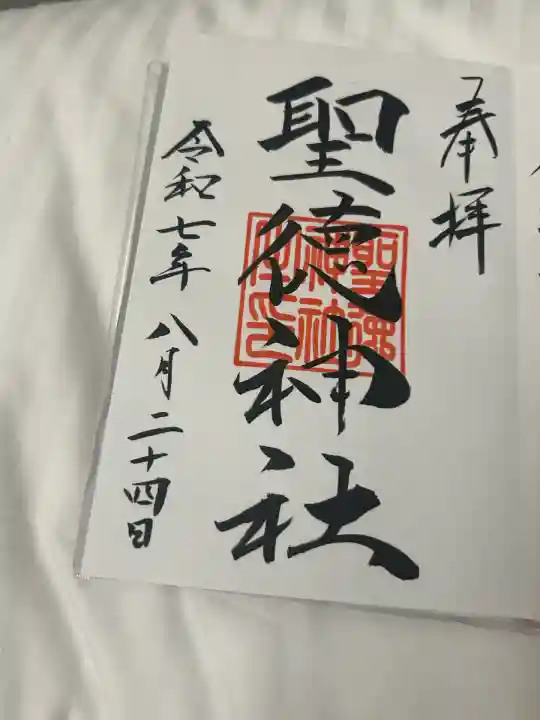 奉拝
聖徳神社
聖徳
神社
之印
令和七年 八月二十四日